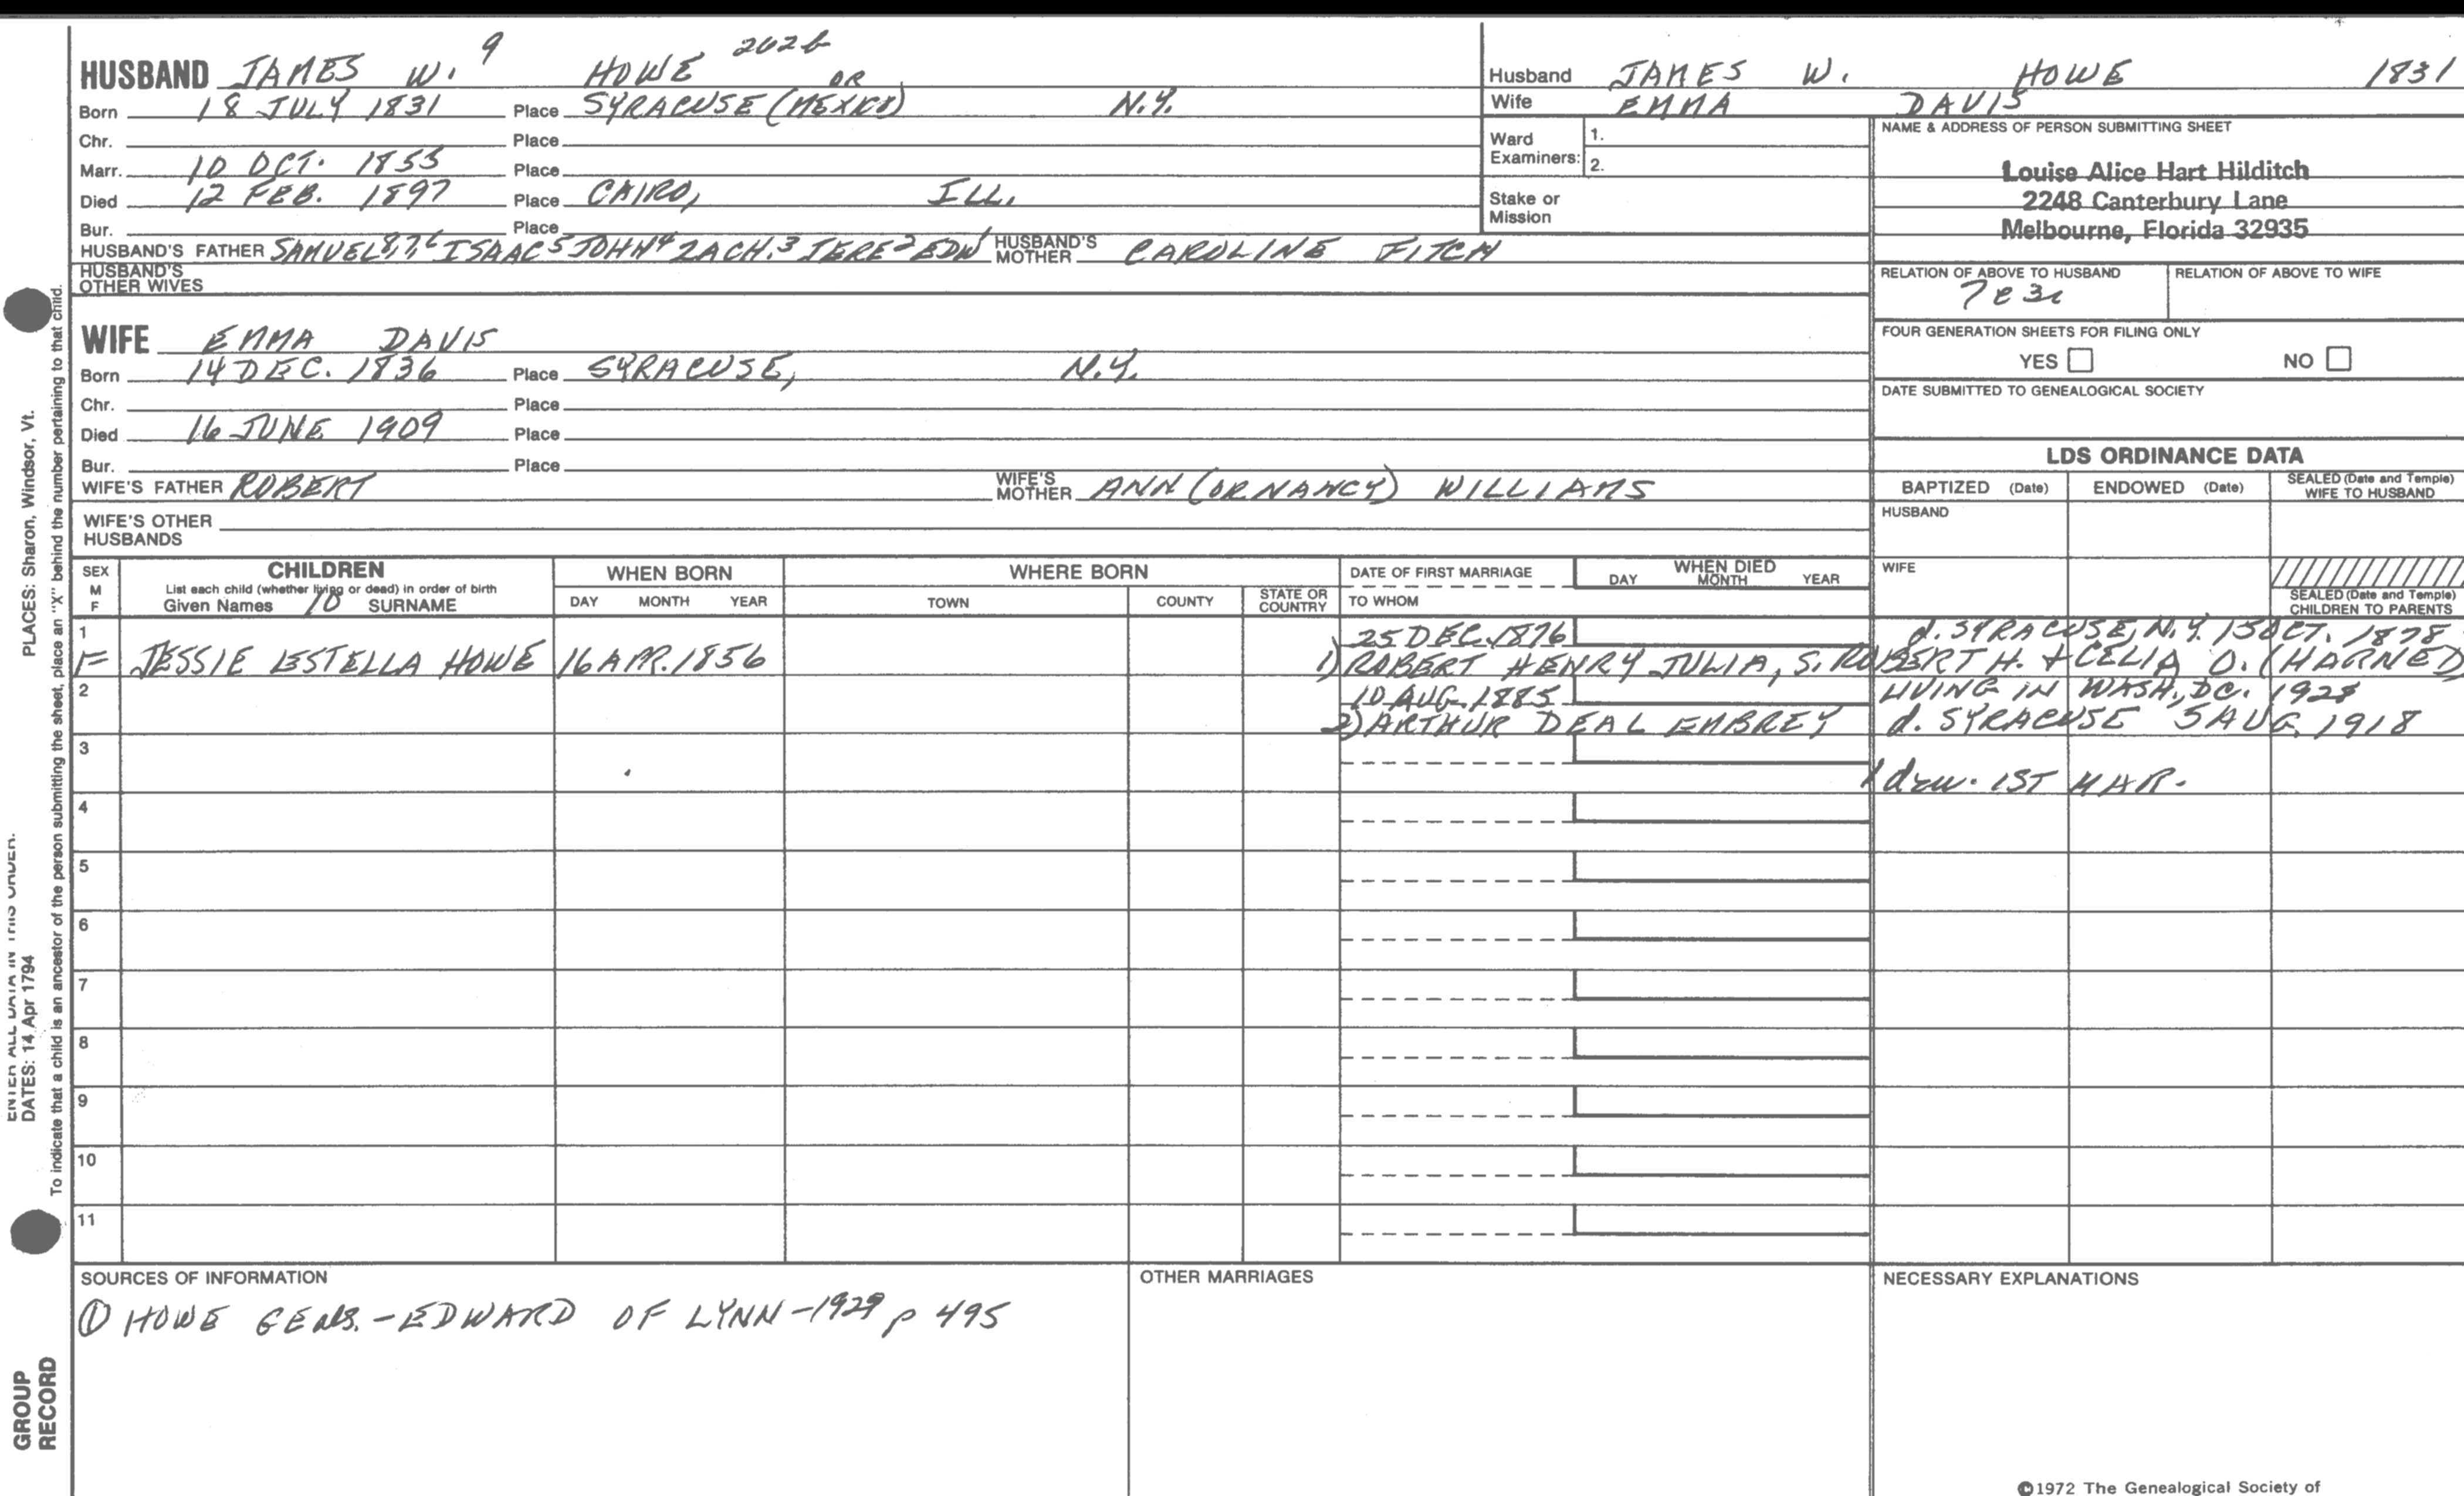 HUSBAND JAMES W. 9 HOWE 262b
Born 18 JULY 1831 Place SYRACUSE (OR MEXICO) N.Y.
Chr. Place
Marr. 10 OCT. 1855 Place
Died 12 FEB. 1897 Place CAIRO, ILL.
Bur. Place
HUSBAND'S FATHER SAMUEL 8,7,6 ISAAC 5 JOHN 4 ZACH. 3 JERE 2 EDW 1 HUSBAND'S MOTHER CAROLINE FITCH
HUSBAND'S OTHER WIVES
WIFE EMMA DAVIS
Born 14 DEC. 1836 Place SYRACUSE, N.Y.
Chr. Place
Died 16 JUNE 1909 Place
Bur. Place
WIFE'S FATHER ROBERT WIFE'S MOTHER ANN (OR NANCY) WILLIAMS
WIFE'S OTHER HUSBANDS
Husband JAMES W. HOWE 1831
Wife EMMA DAVIS
Ward Examiners: 1.
2.
Stake or Mission
NAME & ADDRESS OF PERSON SUBMITTING SHEET
Louise Alice Hart Hilditch
2248 Canterbury Lane
Melbourne, Florida 32935
RELATION OF ABOVE TO HUSBAND RELATION OF ABOVE TO WIFE
7c3r
FOUR GENERATION SHEETS FOR FILING ONLY
YES NO
DATE SUBMITTED TO GENEALOGICAL SOCIETY
LDS ORDINANCE DATA
BAPTIZED (Date) ENDOWED (Date) SEALED (Date and Temple) WIFE TO HUSBAND
HUSBAND
WIFE
SEALED (Date and Temple) CHILDREN TO PARENTS
SEX M F
CHILDREN
List each child (whether living or dead) in order of birth
Given Names 10 SURNAME
WHEN BORN
DAY MONTH YEAR
WHERE BORN
TOWN COUNTY STATE OR COUNTRY
DATE OF FIRST MARRIAGE
TO WHOM
WHEN DIED
DAY MONTH YEAR
1
F JESSIE ESTELLA HOWE 16 APR. 1856
25 DEC. 1876 d. SYRACUSE, N.Y. 15 OCT. 1878
1) ROBERT HENRY JULIA, S. ROBERT H. + CELIA O. (HARNED)
2
10 AUG. 1885 LIVING IN WASH, DC. 1928
2) ARTHUR DEAL EMBREY d. SYRACUSE 5 AUG. 1918
3
1 dau. 1ST MAR.
4
5
6
7
8
9
10
11
SOURCES OF INFORMATION
① HOWE GENS. - EDWARD OF LYNN - 1929 p 495
OTHER MARRIAGES
NECESSARY EXPLANATIONS
©1972 The Genealogical Society of
PLACES: Sharon, Windsor, Vt.
To indicate that a child is an ancestor of the person submitting the sheet, place an "X" behind the number pertaining to that child.
ENTER ALL DATA IN THIS ORDER:
DATES: 14 Apr 1794
GROUP RECORD